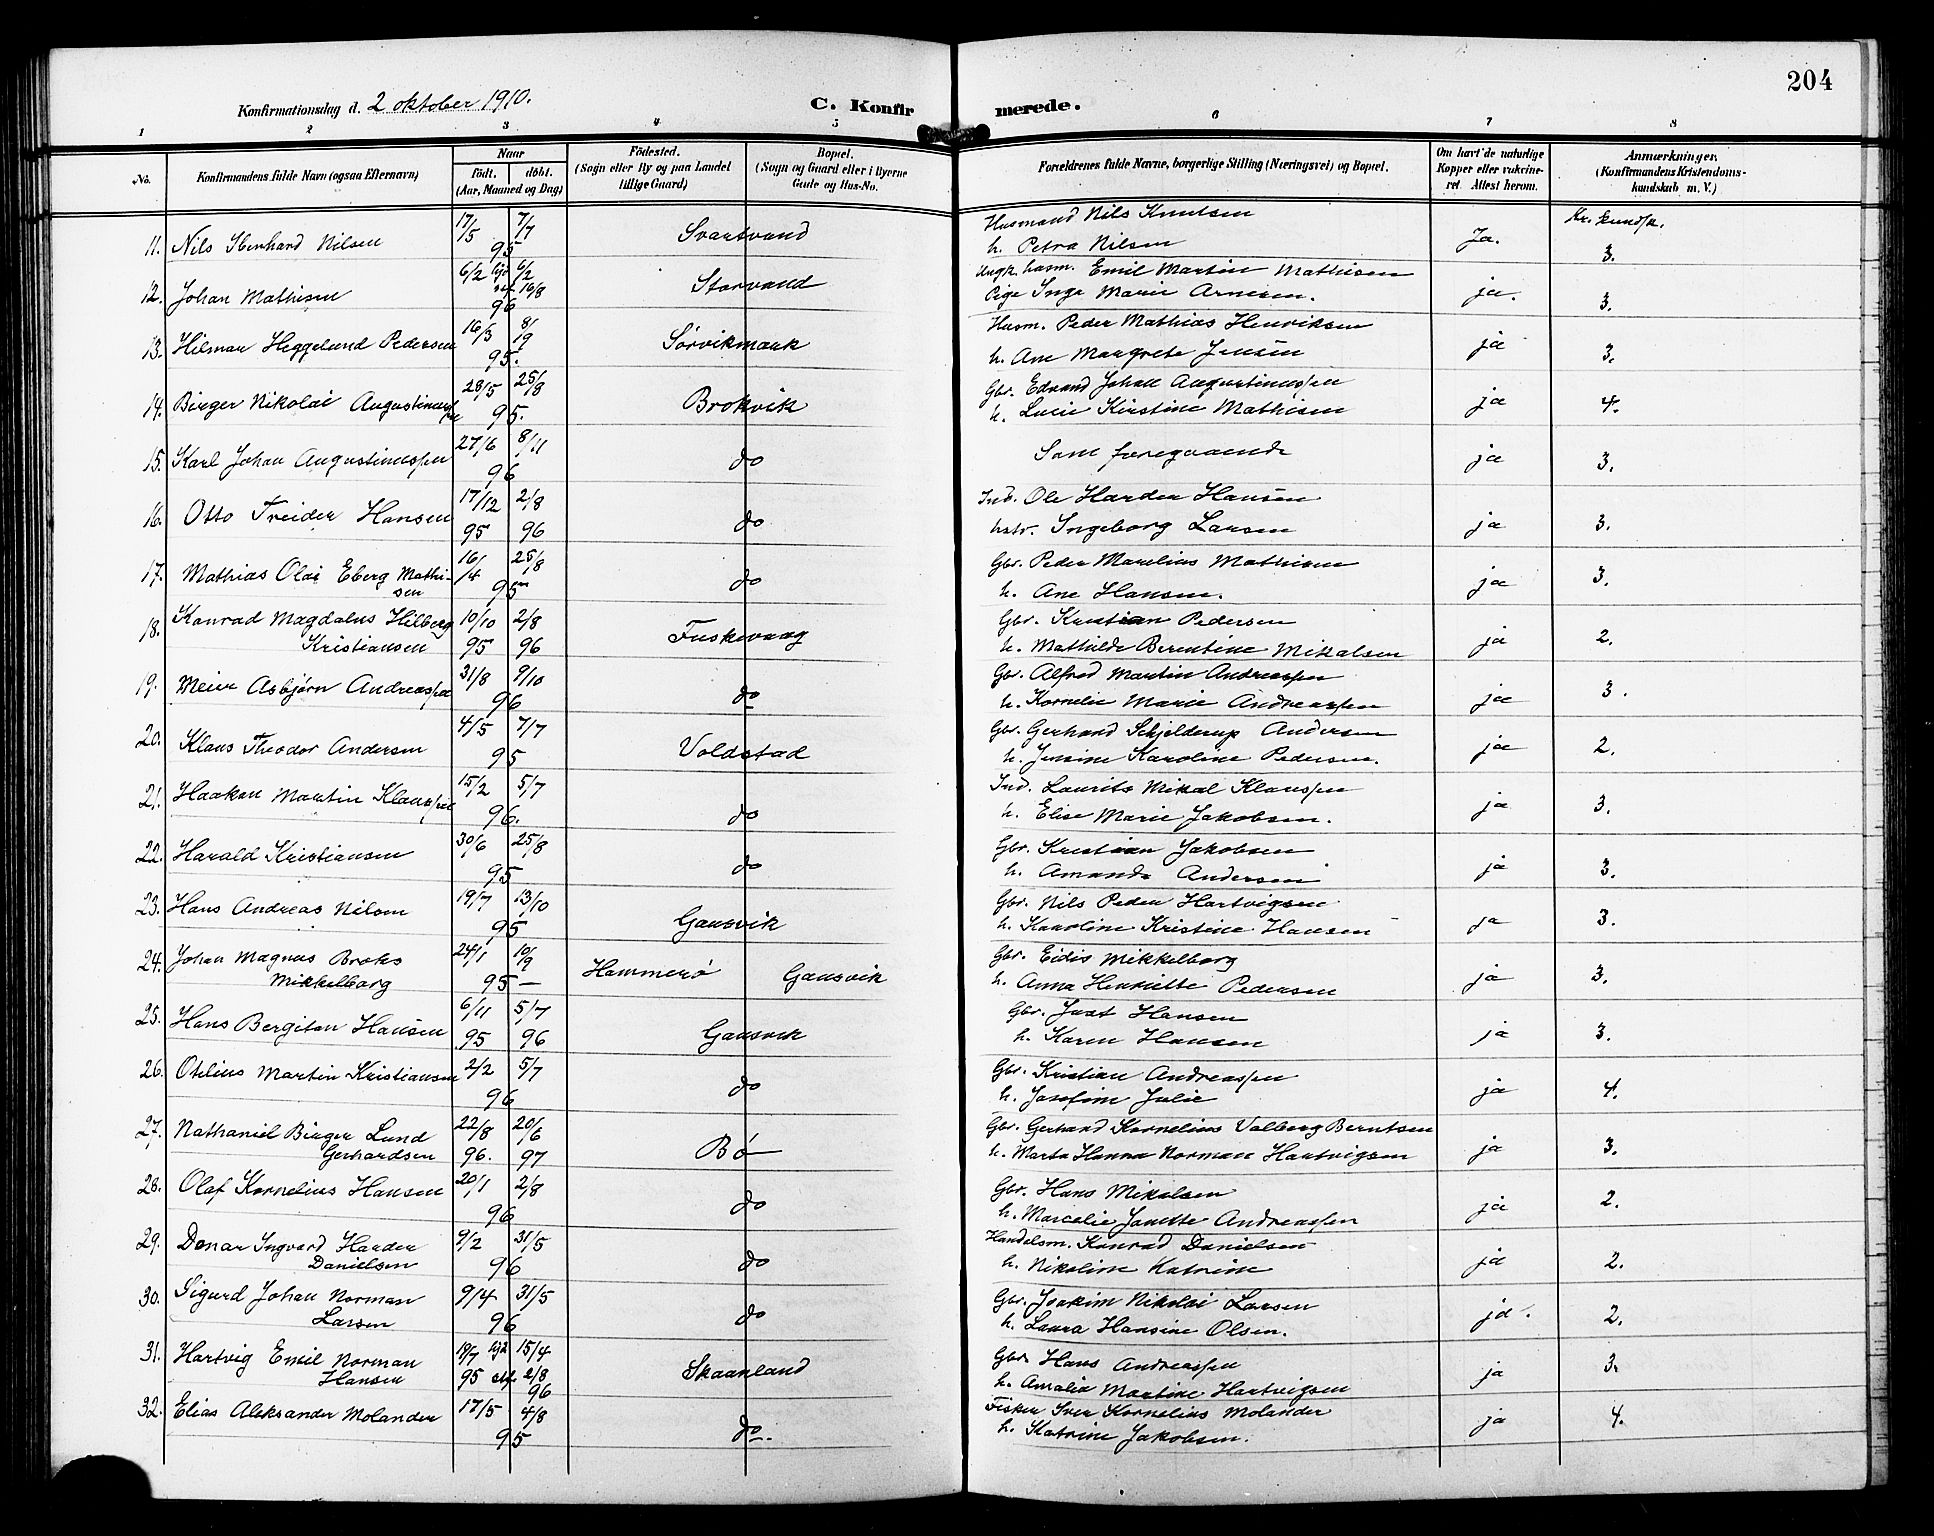 204
Konfirmationsdag d. 2 oktober 1910.
C. Konfirmerede.
1 2 3 4 5 6 7 8
No.
Konfirmandens fulde Navn (ogsaa Efternavn)
Naar
født. døbt.
(Aar, Maaned og Dag)
Fødested.
(Sogn eller By og paa Landet
tillige Gaard)
Bopæl.
(Sogn og Gaard eller i Byerne
Gade og Hus-No.
Forældrenes fulde Navne, borgerlige Stilling (Næringsvei) og Bopæl.
Om havt de naturlige
Kopper eller vakcine-
ret. Attest herom.
Anmærkninger.
(Konfirmandens Kristendoms-
kundskab m. V.)
11. Nils Eberhard Nilsen 17/5 7/7 95 Svartvand Husmand Nils Knutsen
h. Petra Nilsen Ja. Kr. kundsk. 3.
12. Johan Mathisen 6/2 hjd 6/2 16/8 96 Storvand Ungk. husm. Emil Martin Mathisen
Pige Inga Marie Arnesen. ja. 3.
13. Hilmar Heggelund Pedersen 16/3 8/19 95. Sørvikmark Husm. Peder Mathias Henriksen
h. Ane Margrete Jensen ja 3.
14. Birger Nikolai Augustinussen 28/5 25/8 95. Brokvik Gbr. Edvard Johan Augustinussen
h. Lucie Kirstine Mathisen ja 4.
15. Karl Johan Augustinussen 27/6 8/11 96 do Som foregaaende ja 3.
16. Otto Treider Hansen 17/12 95 2/8 96 do Ind. Ole Harder Hansen
hstr. Ingeborg Larsen ja 3.
17. Mathias Olai Eberg Mathi-
sen 16/14 25/8 95 do Gbr. Peder Marelius Mathisen
h. Ane Hansen. ja 3.
18. Konrad Magdalus Hilberg
Kristiansen 10/10 95 2/8 96 Fuskevaag Gbr. Kristian Pedersen
h. Mathilde Berentine Mikalsen ja 2.
19. Meier Asbjørn Andreassen 31/8 9/10 96 do Gbr. Alfred Martin Andreassen
h. Kornelie Marie Andreassen ja 3.
20. Klaus Theodor Andersen 4/5 7/7 95 Voldstad Gbr. Gerhard Schjelderup Andersen
h. Jensine Karoline Pedersen. ja 2.
21. Haakon Martin Klaussen 15/2 5/7 96. do Ind. Laurits Mikal Klaussen
h. Elise Marie Jakobsen. ja 3.
22. Harald Kristiansen 30/6 25/8 95 do Gbr. Kristian Jakobsen
h. Amanda Andersen ja 3.
23. Hans Andreas Nilsen 19/7 13/10 95 Gausvik Gbr. Nils Peder Hartvigsen
h. Karoline Kristine Hansen ja 3.
24. Johan Magnus Broks
Mikkelborg 24/1 10/9 95 — Hammerø Gausvik Gbr. Eidis Mikkelborg
h. Anna Henriette Pedersen ja 3.
25. Hans Bergiton Hansen 6/11 95 5/7 96 Gausvik Gbr. Just Hansen
h. Karen Hansen ja 3.
26. Otelius Martin Kristiansen 2/2 5/7 96 do Gbr. Kristian Andreassen
h. Josefine Julie ja 4.
27. Nathaniel Birger Lund
Gerhardsen 22/8 96. 20/6 97 Bø Gbr. Gerhard Kornelius Valberg Berntsen
h. Marta Hanna Norman Hartvigsen ja 3.
28. Olaf Kornelius Hansen 20/1 2/8 96 do Gbr. Hans Mikalsen
h. Marcelie Janette Andreassen ja 2.
29. Donar Ingvard Harder
Danielsen 9/2 31/5 96 do Handelsm. Konrad Danielsen
h. Nikoline Katrine ja 2.
30. Sigurd Johan Norman
Larsen 9/4 31/5 96 do Gbr. Joakim Nikolai Larsen
h. Laura Hansine Olsen. ja. 2.
31. Hartvig Emil Norman
Hansen 19/7 95 hjd 15/4 2/8 96 Skaanland Gbr. Hans Andreassen
h. Amalie Martine Hartvigsen ja 3.
32. Elias Aleksander Molander 17/5 4/8 95 do. Fisker Iver Kornelius Molander
h. Katrine Jakobsen. ja 4.